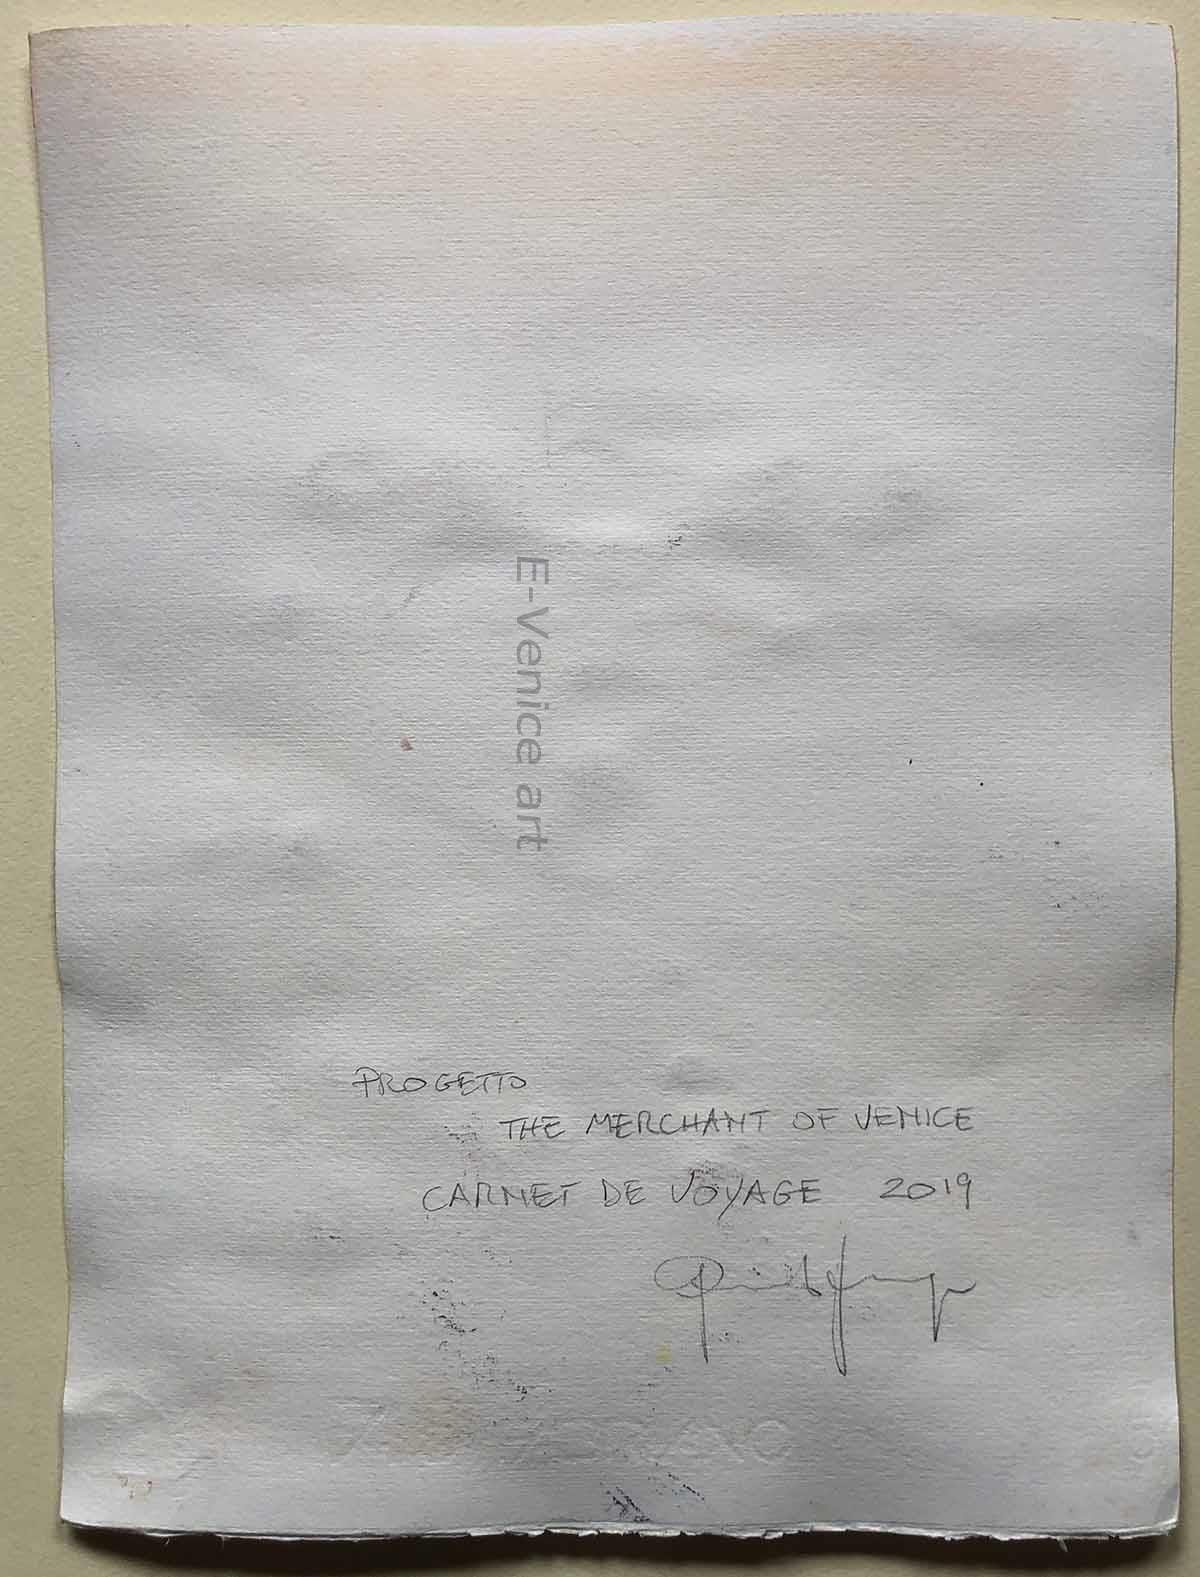 E-Venice art
PROGETTO
THE MERCHANT OF VENICE
CARNET DE VOYAGE 2019